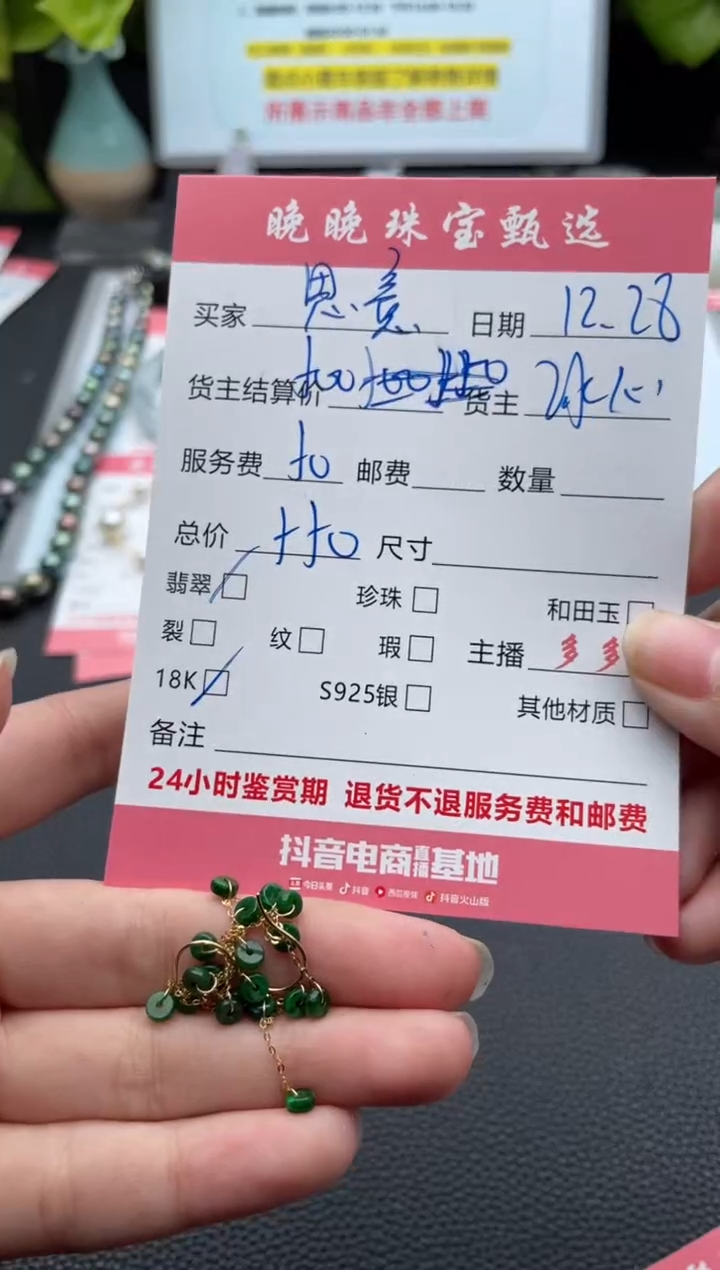 所售示商品非全部上架
晚晚珠宝甄选
买家 思意 日期 12.28
货主结算价 货主 冰心
服务费 邮费 数量
总价 尺寸
翡翠 珍珠 和田玉
裂 纹 瑕 主播 多多
18K S925银 其他材质
备注
24小时鉴赏期 退货不退服务费和邮费
抖音电商直播基地
今日头条 抖音 西瓜视频 抖音火山版